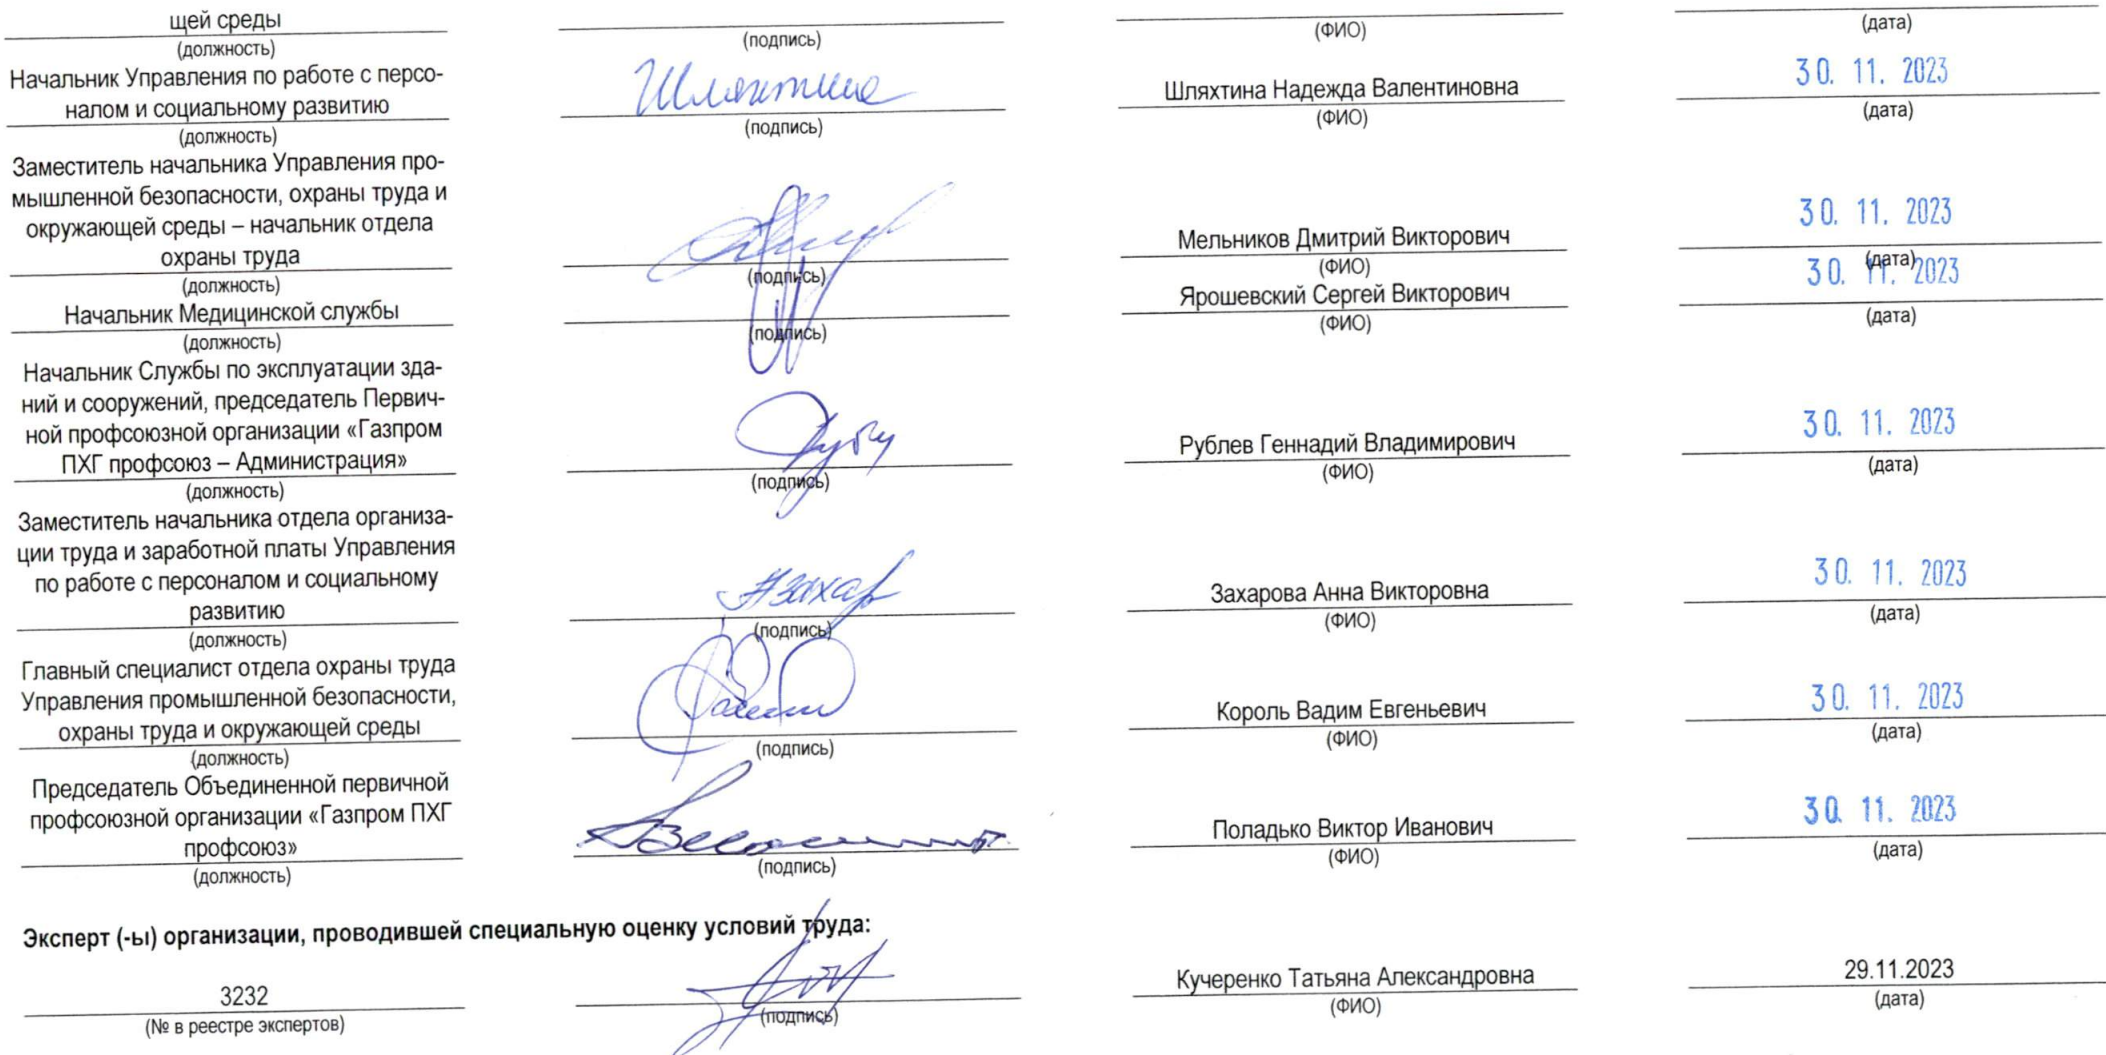 щей среды
(должность) (подпись) (ФИО) (дата)
Начальник Управления по работе с персо-
налом и социальному развитию Шляхтина Шляхтина Надежда Валентиновна 30. 11. 2023
(должность) (подпись) (ФИО) (дата)
Заместитель начальника Управления про-
мышленной безопасности, охраны труда и
окружающей среды – начальник отдела
охраны труда Мельников Дмитрий Викторович 30. 11. 2023
(должность) (подпись) (ФИО) (дата)
Начальник Медицинской службы Ярошевский Сергей Викторович 30. 11. 2023
(должность) (подпись) (ФИО) (дата)
Начальник Службы по эксплуатации зда-
ний и сооружений, председатель Первич-
ной профсоюзной организации «Газпром
ПХГ профсоюз – Администрация» Рублев Геннадий Владимирович 30. 11. 2023
(должность) (подпись) (ФИО) (дата)
Заместитель начальника отдела организа-
ции труда и заработной платы Управления
по работе с персоналом и социальному
развитию Захарова Анна Викторовна 30. 11. 2023
(должность) (подпись) (ФИО) (дата)
Главный специалист отдела охраны труда
Управления промышленной безопасности,
охраны труда и окружающей среды Король Вадим Евгеньевич 30. 11. 2023
(должность) (подпись) (ФИО) (дата)
Председатель Объединенной первичной
профсоюзной организации «Газпром ПХГ
профсоюз» Поладько Виктор Иванович 30. 11. 2023
(должность) (подпись) (ФИО) (дата)
Эксперт (-ы) организации, проводившей специальную оценку условий труда:
3232 Кучеренко Татьяна Александровна 29.11.2023
(№ в реестре экспертов) (подпись) (ФИО) (дата)